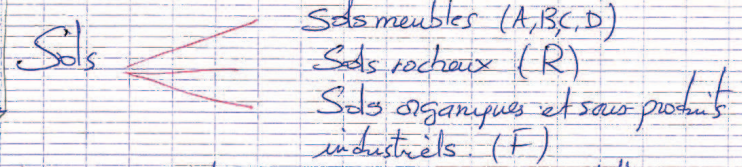 Sols meubles (A, B, C, D)
Sols
Sols rocheux (R)
Sols organiques et sous produits
industriels. (F)